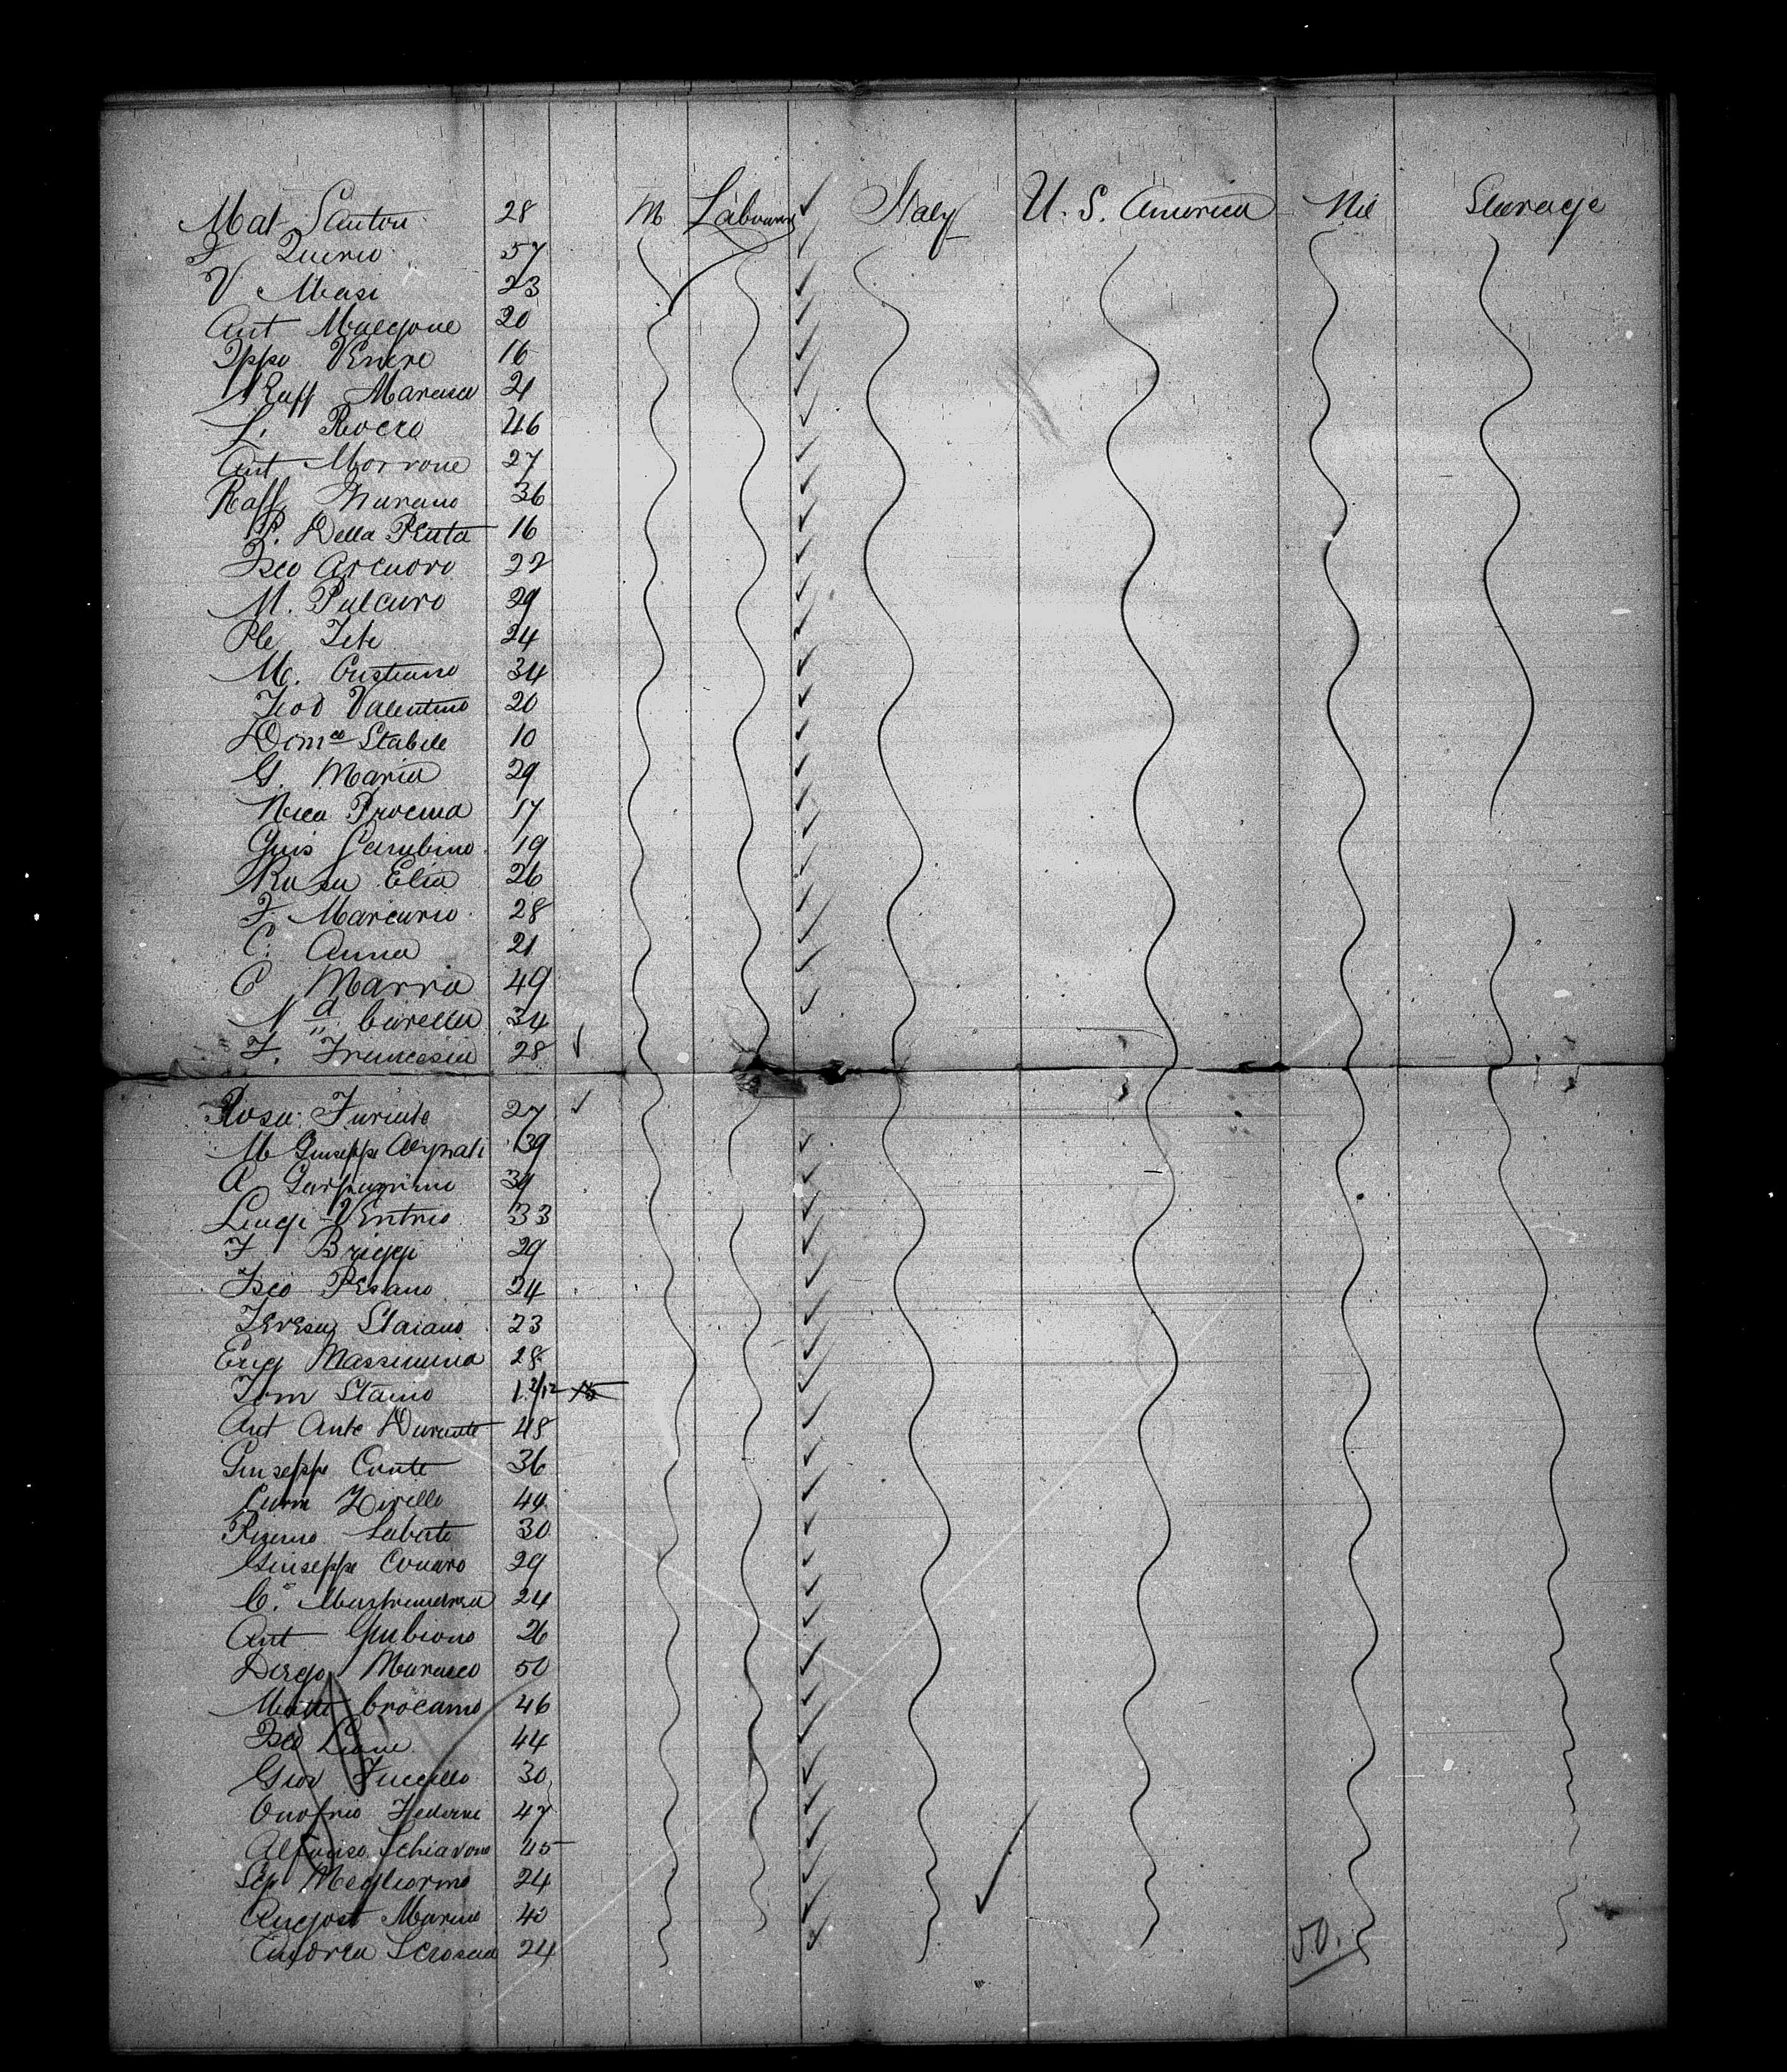 Mat Santoro 28 M Labourers Italy U. S. America Nil Steerage
F Querio 57
V Masi 23
Ant Malgone 20
Ippo Venere 16
Raff Marasca 21
L. Rocco 46
Ant Morrone 27
Raff Murano 36
P. Della Penta 16
Fsco Arcuoro 22
M. Pulcaro 29
Ple Tete 24
M. Cristiano 34
Teod Valentino 20
Domco Stabile 10
G. Maria 29
Nica Procina 17
Guis Carubino 19
Rosa Elia 26
F. Marcurio 28
C. Anna 21
C Marria 49
Na Carella 34
F. Francesia 28
Rosa Furiato 27
M Giuseppe 39
A 34
Luigi Ventrio 33
F Briggi 29
Fsco Pesano 24
Teresa Staiano 23
Erig Massimina 28
Tom Staino 1 2/12
Ant Ante Durante 48
Giuseppe Conte 36
Carm Zirello 44
Labate 30
Giuseppe Conaro 29
C. Mastrandrea 24
Ant Gubiono 26
Diego Marasco 50
Matte Crocamo 46
Fsco Leone 44
Giov Fuccillo 30
Onofrio Federne 47
Alfonso Schiavone 45
Sep Megliorino 24
August Marino 40
Andrea 24 50.